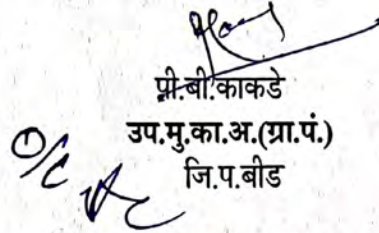 पी.बी.काकडे
उप.मु.का.अ.(ग्रा.पं.)
जि.प.बीड
O/C